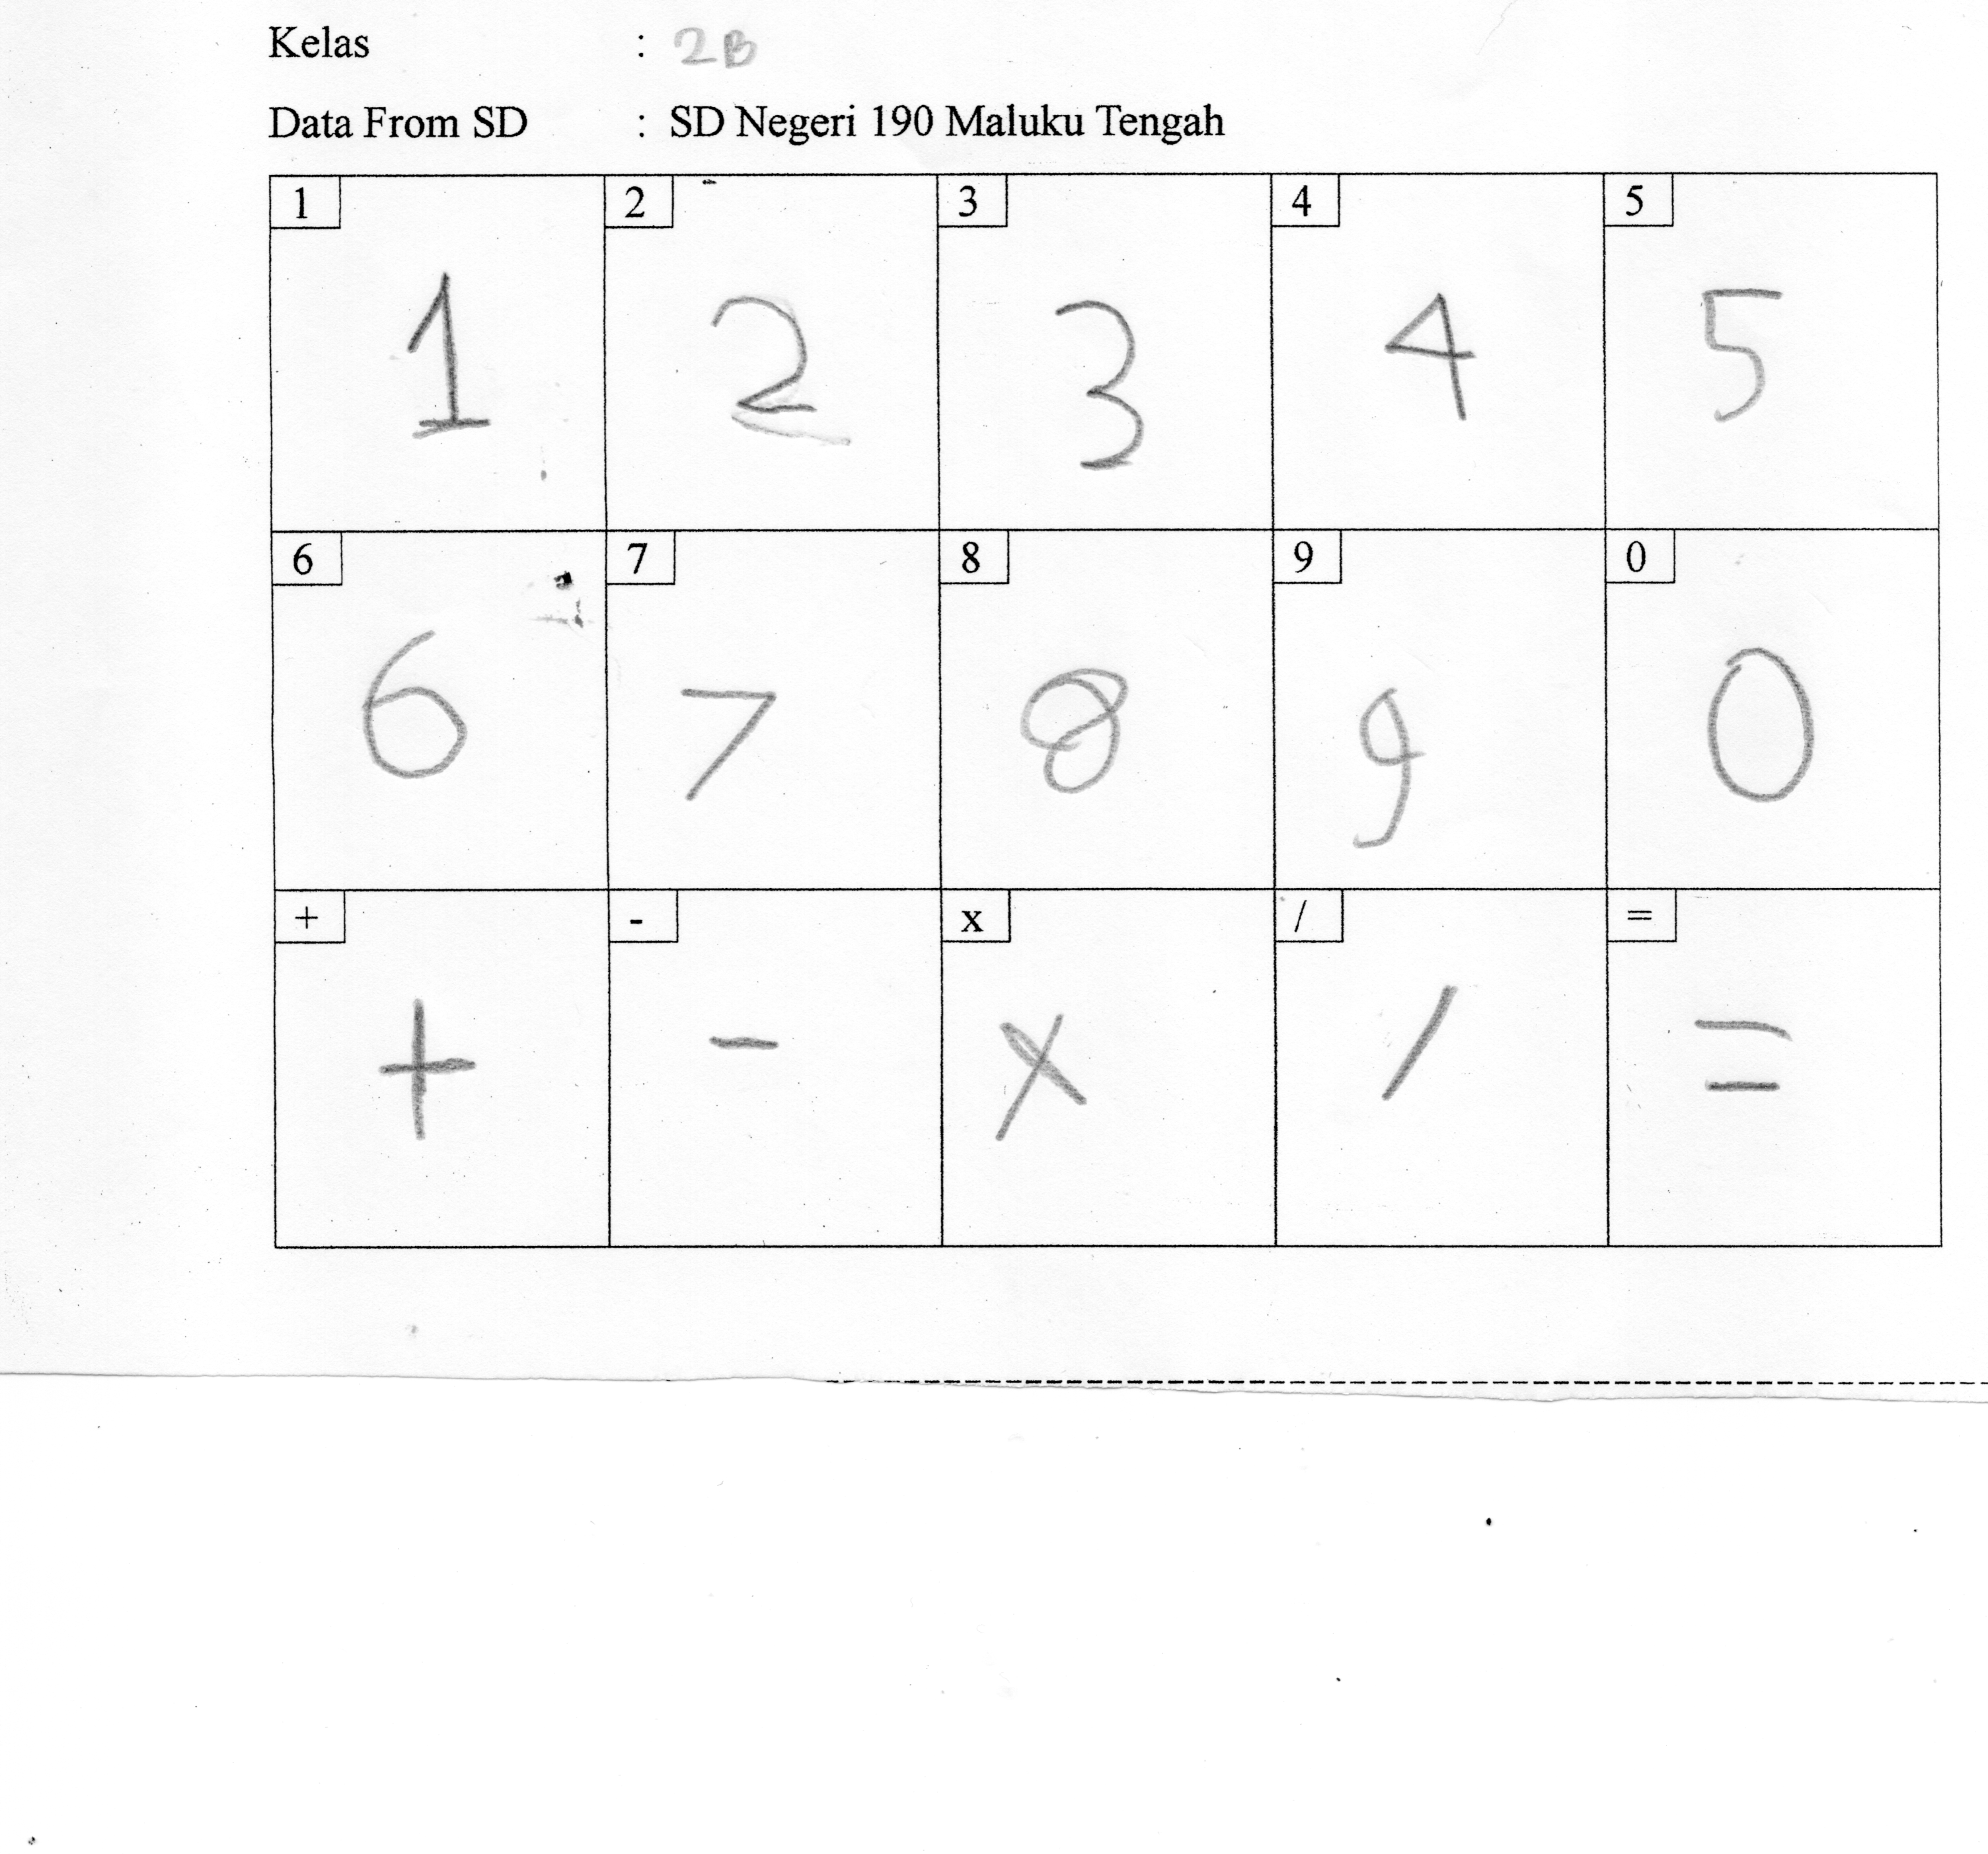 Kelas : 2B
Data From SD : SD Negeri 190 Maluku Tengah
1 2 3 4 5
1 2 3 4 5
6 7 8 9 0
6 7 8 9 0
+ - x / =
+ - x / =